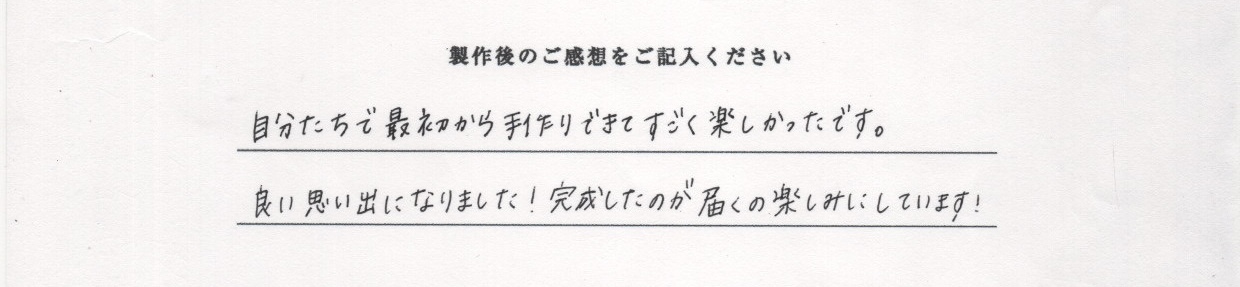 製作後のご感想をご記入ください
自分たちで最初から手作りできてすごく楽しかったです。
良い思い出になりました！完成したのが届くの楽しみにしています！